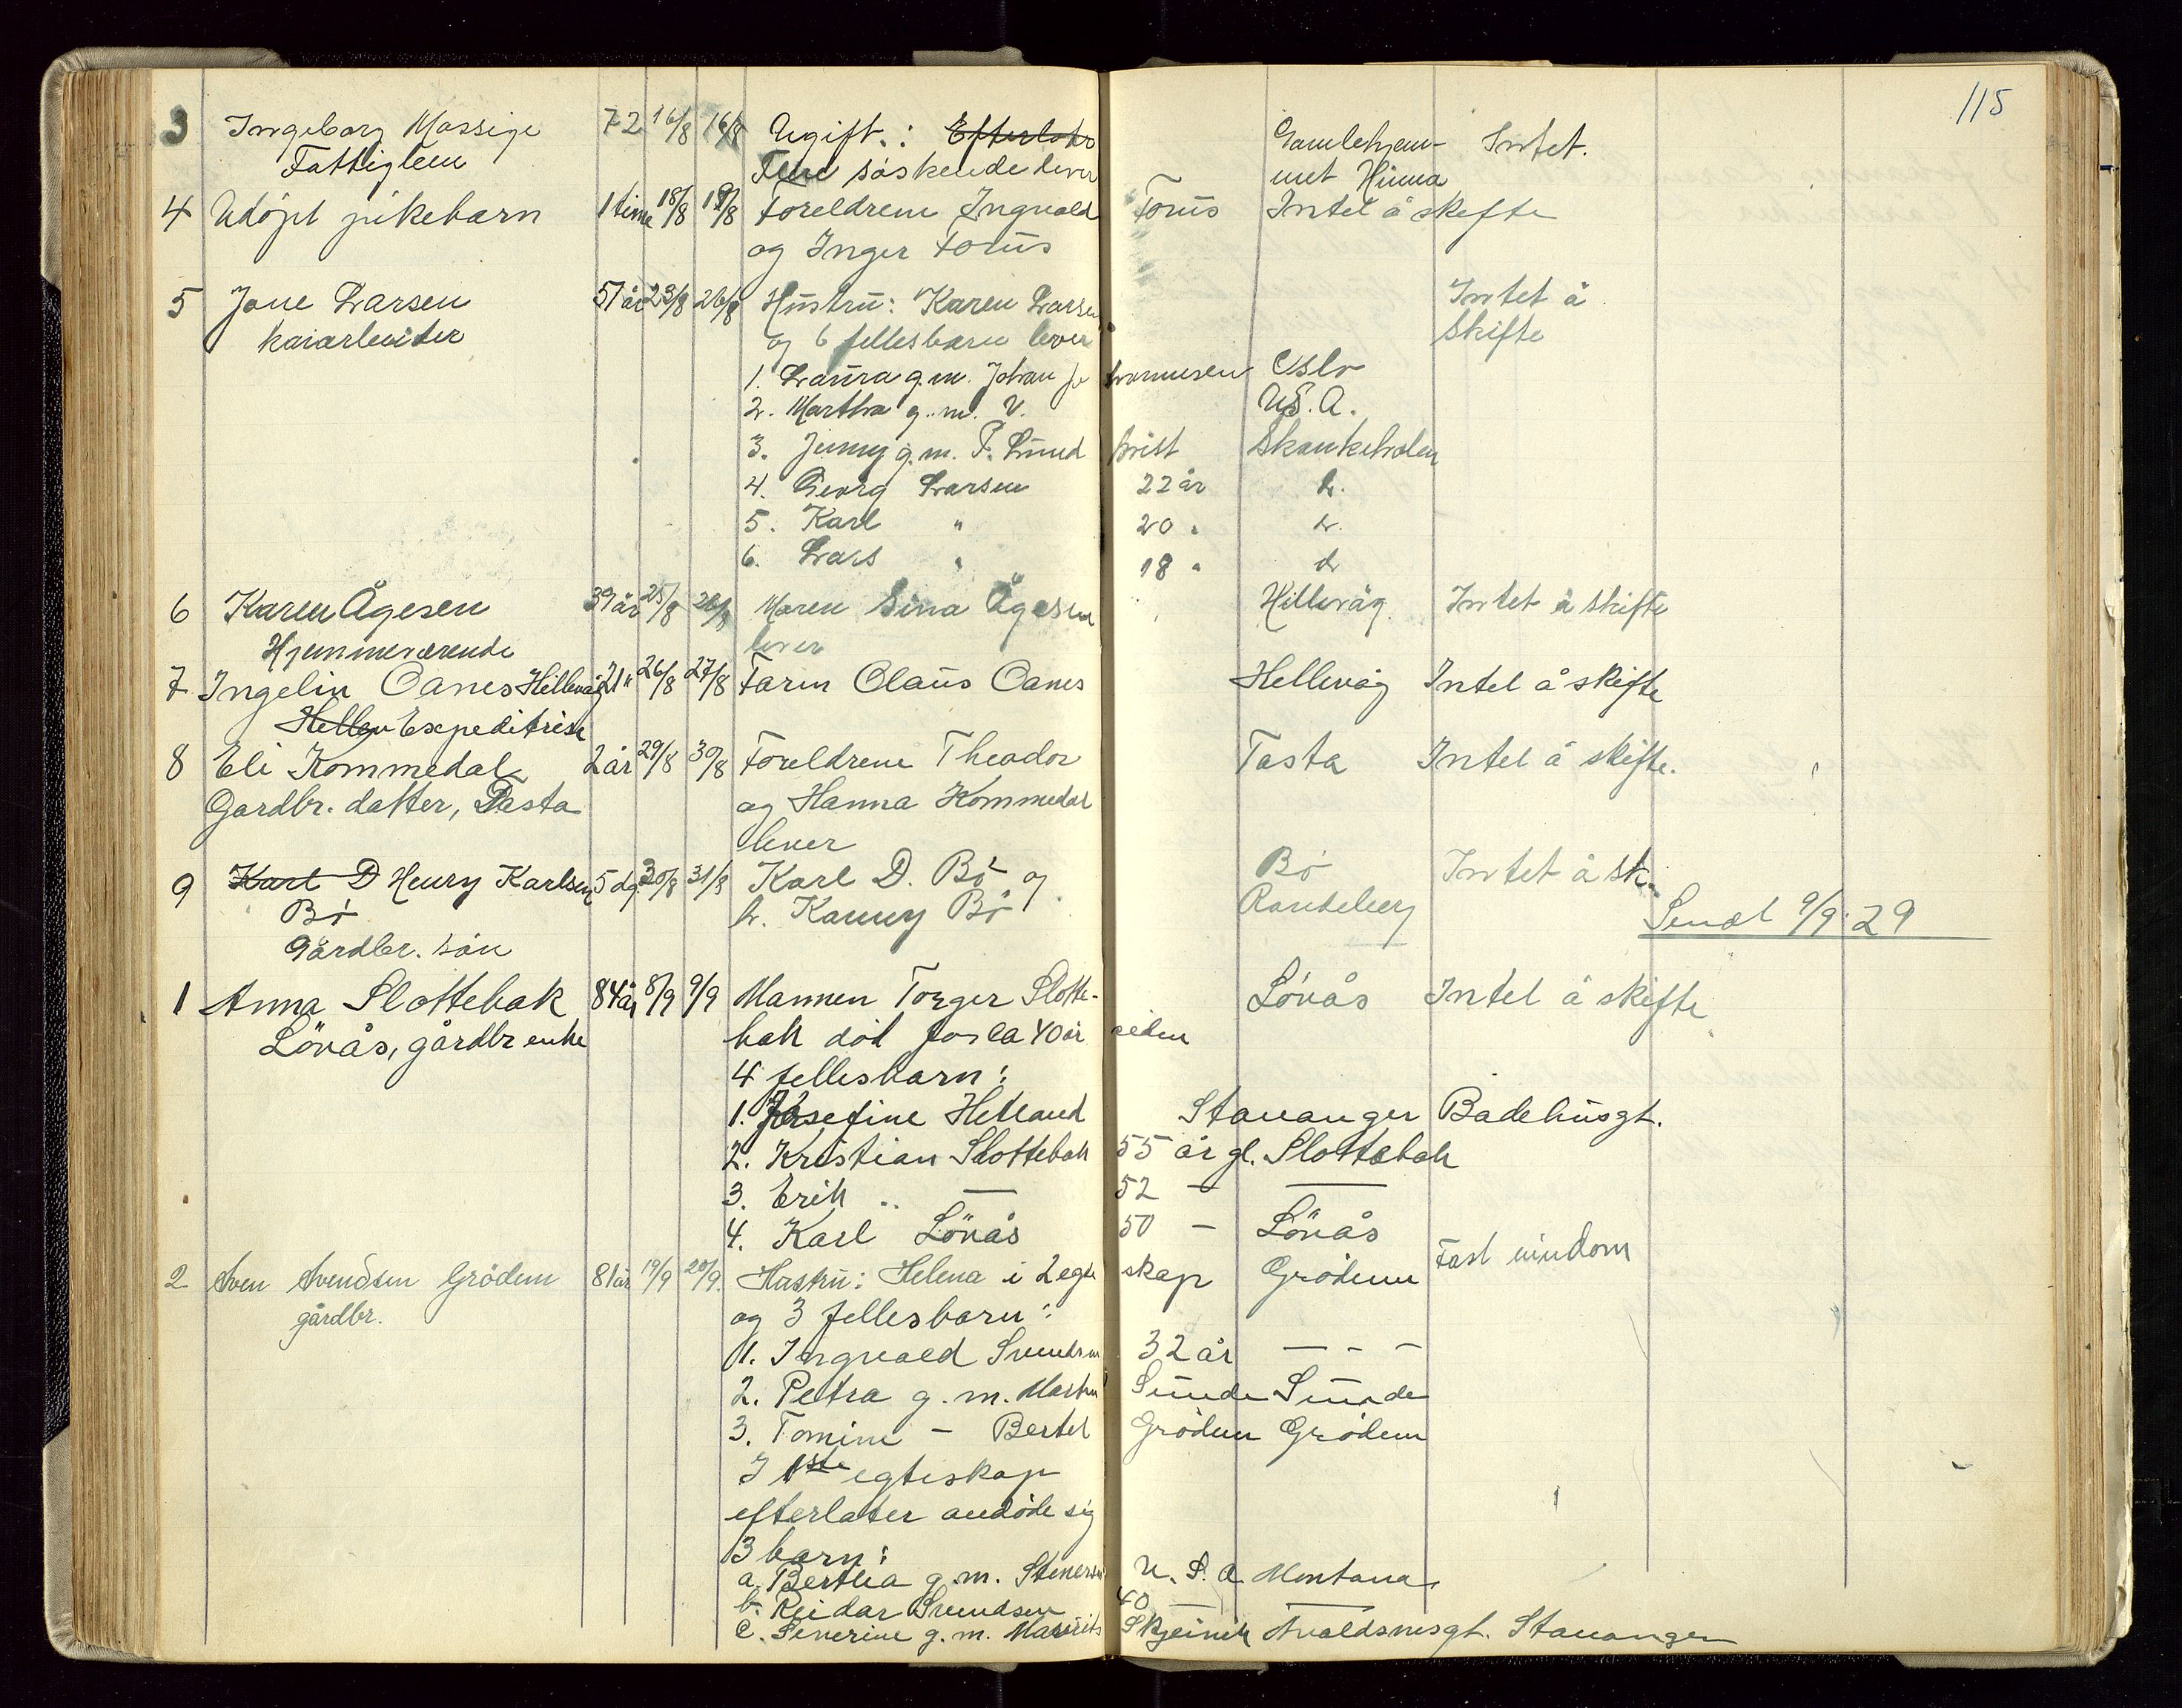 115
3 Ingeborg Massige 72 16/8 16/8 Ugift: Efterlato Gamlehjem- Intet.
Fattiglem Flere søskende lever met Hinna
4 Udöpt pikebarn 1 time 18/8 19/8 Foreldrene Ingvald Forus Intet å skifte
og Inger Forus
5 Jone Larsen 51 år 23/8 26/8 Hustru: Karen Larsen Intet å
kaiarbeider og 6 fellesbarn lever skifte
1. Laura g.m. Johan Oslo
2. Martha g.m. V. U.S.A.
3. Jenny g.m. P. Lund Skankeholen
4. Georg Larsen 22 år h.
5. Karl " 20 " h.
6. Lars " 18 " h
6 Karen Ågesen 39 år 25/8 28/8 Maren Sina Ågesen Hillevåg Intet å skifte
Hjemmeværende lever
7 Ingelin Oanes Hillevåg 21 " 26/8 27/8 Farm Olaus Oanes Hellevåg Intet å skifte
Hellev Expeditrise
8 Eli Kommedal 2 år 29/8 30/8 Foreldrene Theodor Tasta Intet å skifte.
Gardbr. datter, Tasta og Hanna Kommedal
lever
9 Karl D Henry Karlsen 5 dg. 30/8 31/8 Karl D. Bö og Bö Intet å sk.
Bö h. Kanny Bö Randeberg Sendt 9/9 29
Gårdbr. sön
1 Anna Slottebak 84 år 8/9 9/9 Mannen Torger Slotte- Lövås Intet å skifte
Lövås, gårdbr enke bak död for ca 40 år siden
4 fellesbarn:
1. Josefine Helland Stavanger Badehusgt.
2. Kristian Slottebak 55 år gl. Slottebak
3. Erik " — 52 — —
4. Karl Lövås 50 — Lövås
2 Sven Svendsen Grödem 81 år 19/9 20/9. Hustru: Helena i 2 egteskap Grödem Fast eiendom
gårdbr. og 3 fellesbarn:
1. Ingvald Svendsen 32 år — - -
2. Petra g.m. Martin Sunde Sunde
3. Tomine — Bertel Grödem Grödem
I 1ste egteskap
efterlater avdöde sig
3 barn:
a. Bertha g.m. Stenersen U.S.A. Montana
b. Reidar Svendsen 40 — —
c. Severine g.m. Mauritz Skjeinik Avaldsnesgt. Stavanger